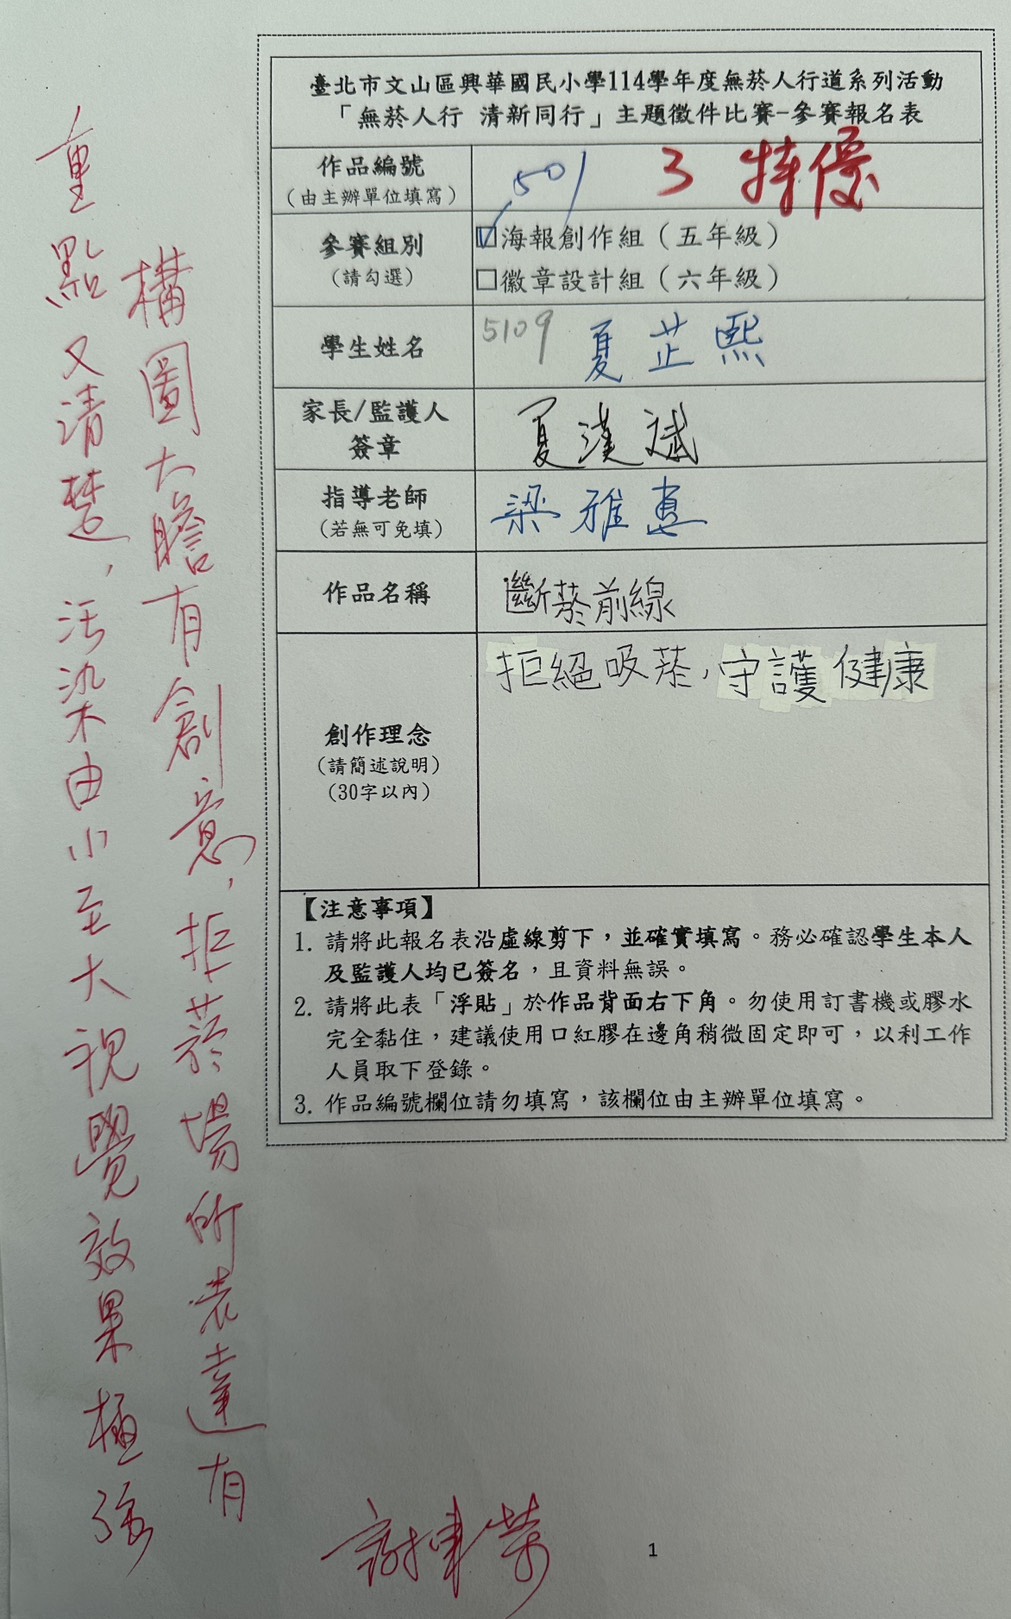 臺北市文山區興華國民小學114學年度無菸人行道系列活動
「無菸人行 清新同行」主題徵件比賽-參賽報名表
作品編號
(由主辦單位填寫)
501 3 特優
參賽組別
(請勾選)
☑海報創作組(五年級)
□徽章設計組(六年級)
學生姓名
5109 夏芷熙
家長/監護人
簽章
夏漢斌
指導老師
(若無可免填)
梁雅惠
作品名稱
斷菸前線
創作理念
(請簡述說明)
(30字以內)
拒絕吸菸,守護健康
【注意事項】
1. 請將此報名表沿虛線剪下,並確實填寫。務必確認學生本人
及監護人均已簽名,且資料無誤。
2. 請將此表「浮貼」於作品背面右下角。勿使用訂書機或膠水
完全黏住,建議使用口紅膠在邊角稍微固定即可,以利工作
人員取下登錄。
3. 作品編號欄位請勿填寫,該欄位由主辦單位填寫。
構圖大膽有創意,拒菸場所表達有
重點又清楚,污染由小至大視覺效果極強
1